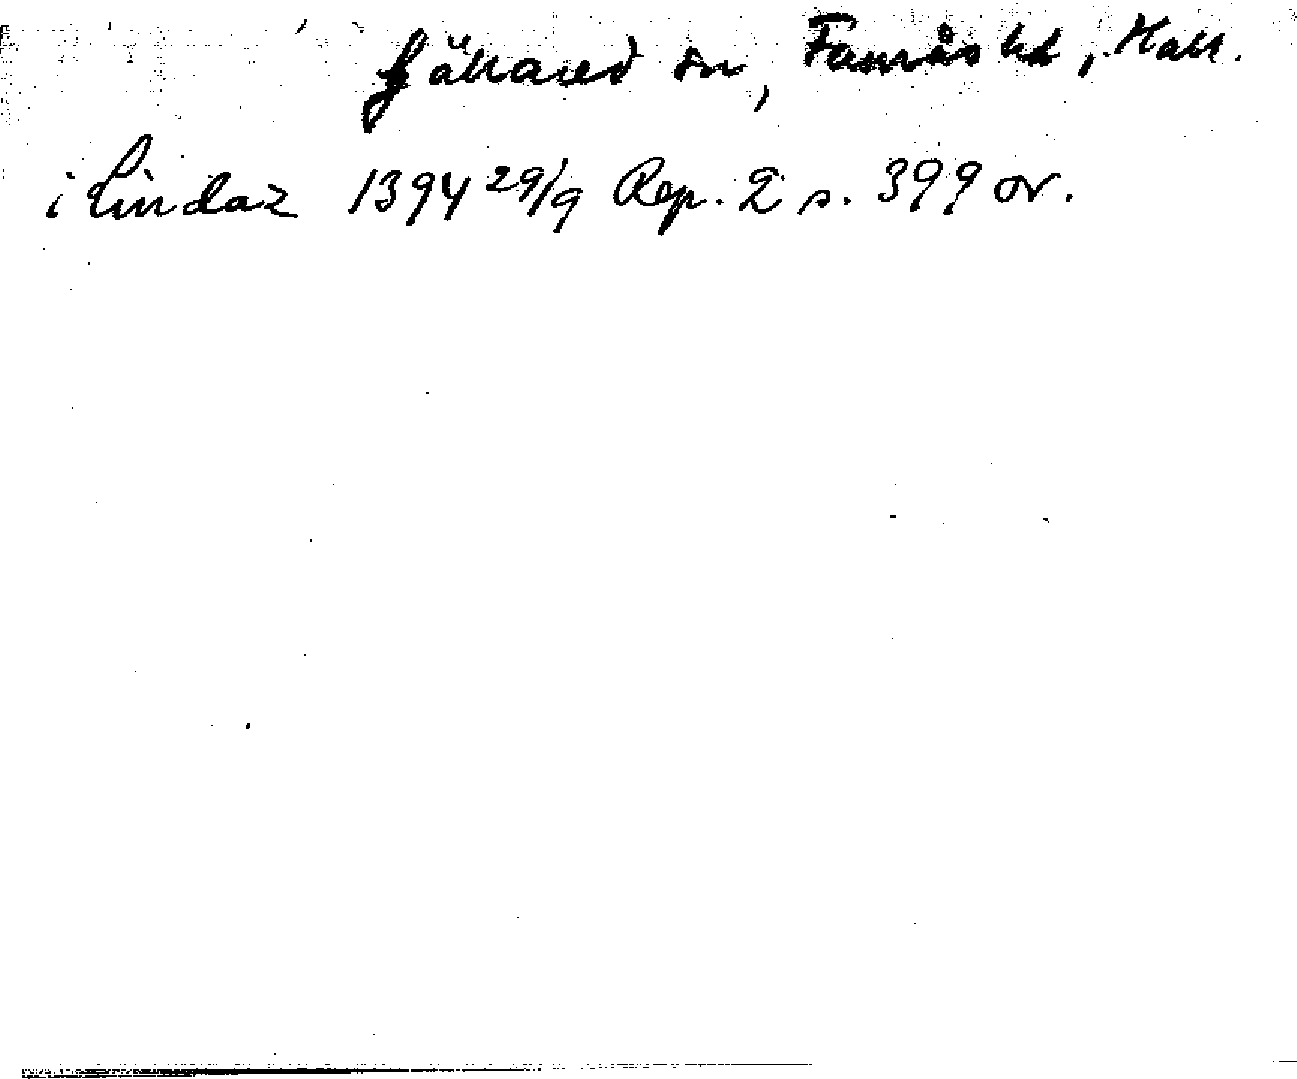 Gällared sn, Faurås hd, Hall.
i Lindaz 1394 29/9 Rep. 2 s. 399 or.